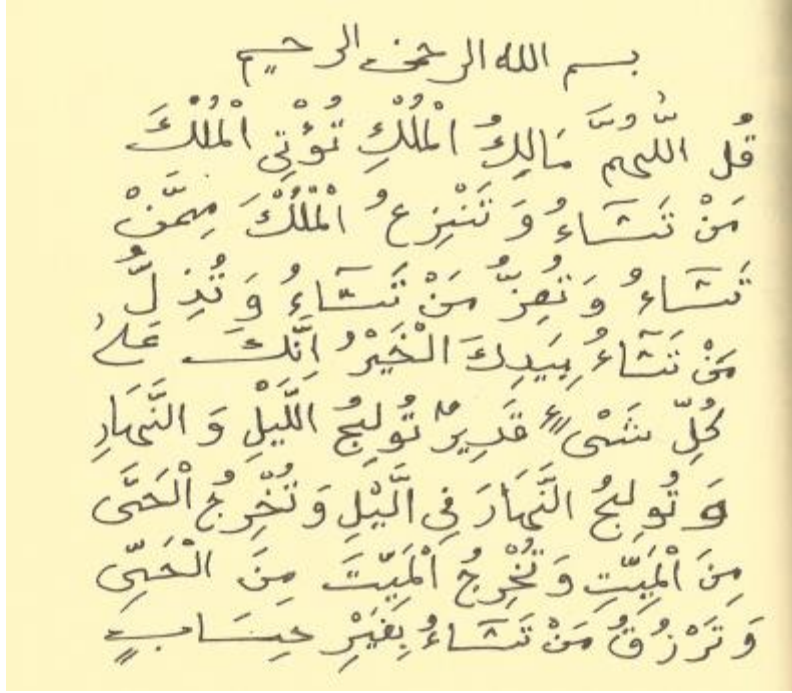 بسم الله الرحمن الرحيم
قُل اللَّهُمَّ مَالِكُ الْمُلْكِ تُؤْتِي الْمُلْكَ
مَنْ تَشَاءُ وَ تَنْزِعُ الْمُلْكَ مِمَّنْ
تَشَاءُ وَ تُعِزُّ مَنْ تَشَاءُ وَ تُذِلُّ
مَنْ تَشَاءُ بِيَدِكَ الْخَيْرُ اِنَّكَ عَلىٰ
كُلِّ شَىْءٍ قَدِيرٌ تُولِجُ اللَّيْلِ وَ النَّهَارِ
وَ تُولِجُ النَّهَارَ فِي الَّيْلِ وَ تُخْرِجُ الْحَىَّ
مِنَ الْمَيِّتِ وَ تُخْرِجُ الْمَيِّتَ مِنَ الْحَيِّ
وَ تَرْزُقُ مَنْ تَشَاءُ بِغَيْرِ حِسَابٍ